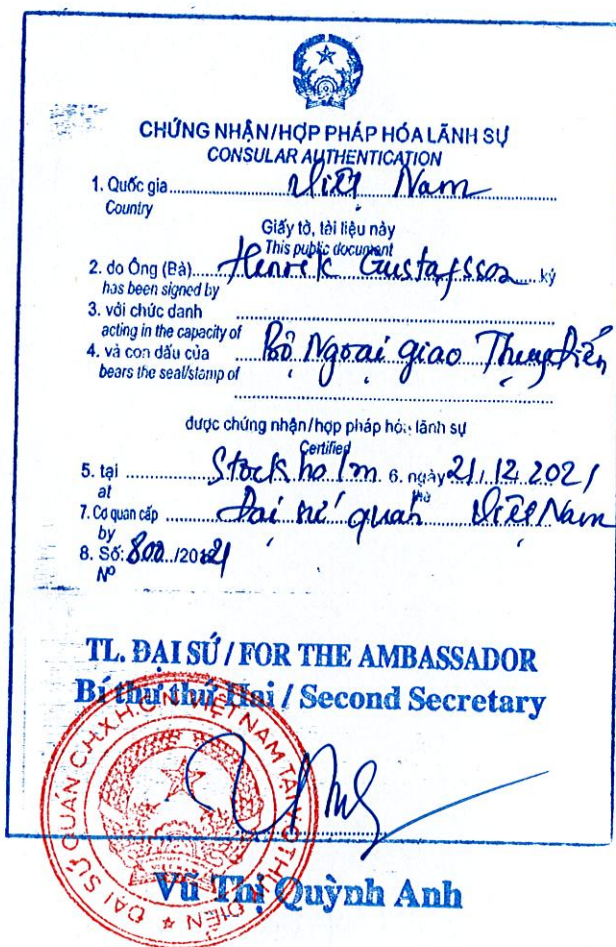 CHỨNG NHẬN/HỢP PHÁP HÓA LÃNH SỰ
CONSULAR AUTHENTICATION
1. Quốc gia Việt Nam
Country
Giấy tờ, tài liệu này
This public document
2. do Ông (Bà) Henrik Gustafsson ký
has been signed by
3. với chức danh
acting in the capacity of
4. và con dấu của Bộ Ngoại giao Thụy Điển
bears the seal/stamp of
được chứng nhận/hợp pháp hóa lãnh sự
Certified
5. tại Stockholm 6. ngày 21.12.2021
at the
7. Cơ quan cấp Đại sứ quán Việt Nam
by
8. Số: /2021
Nº
TL. ĐẠI SỨ / FOR THE AMBASSADOR
Bí thư thứ Hai / Second Secretary
ĐẠI SỨ QUÁN C.H.X.H.C.N VIỆT NAM TẠI V.Q THỤY ĐIỂN
Vũ Thị Quỳnh Anh